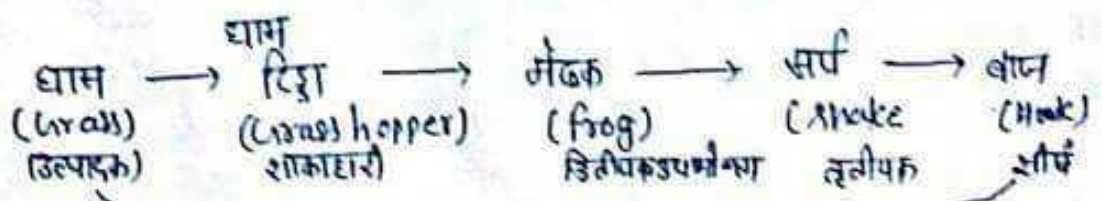 घास
घास → टिड्डा → मेढक → सर्प → बाज
(Grass) (Grass hopper) (frog) (Snake (Hawk)
(उत्पादक) शाकाहारी द्वितीयक उपभोक्ता तृतीयक शीर्ष